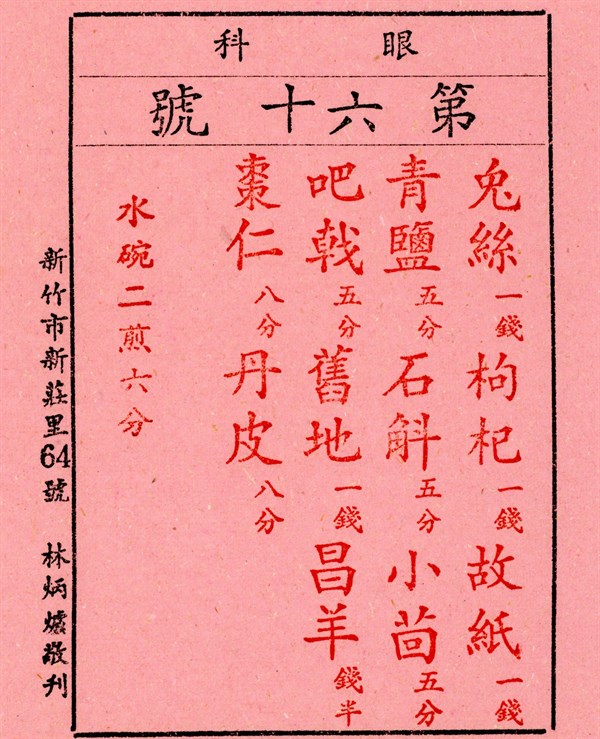 眼科
第六十號
兔絲一錢 枸杞一錢 故紙一錢
青鹽五分 石斛五分 小茴五分
吧戟五分 舊地一錢 昌羊錢半
棗仁八分 丹皮八分
水碗二煎六分
新竹市新莊里64號 林炳爐敬刊